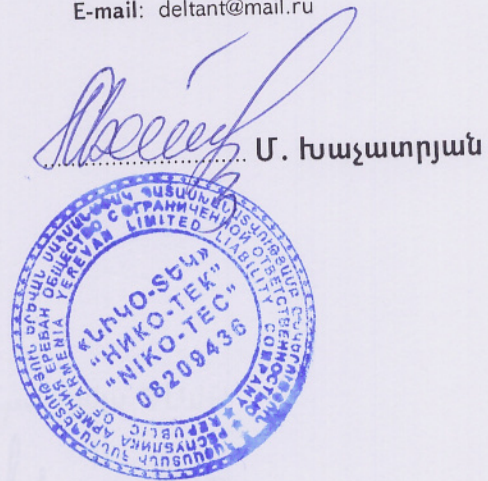 E-mail: deltant@mail.ru
Մ. Խաչատրյան
ՀԱՅԱՍՏԱՆԻ ՀԱՆՐԱՊԵՏՈՒԹՅՈՒՆ ԵՐԵՎԱՆ ՍԱՀՄԱՆԱՓԱԿ ՊԱՏԱՍԽԱՆԱՏՎՈՒԹՅԱՄԲ ԸՆԿԵՐՈՒԹՅՈՒՆ
РЕСПУБЛИКА АРМЕНИЯ ЕРЕВАН ОБЩЕСТВО С ОГРАНИЧЕННОЙ ОТВЕТСТВЕННОСТЬЮ
REPUBLIC OF ARMENIA YEREVAN LIMITED LIABILITY COMPANY
«ՆԻԿՕ-ՏԵԿ»
"НИКО-ТЕК"
"NIKO-TEC"
08209436